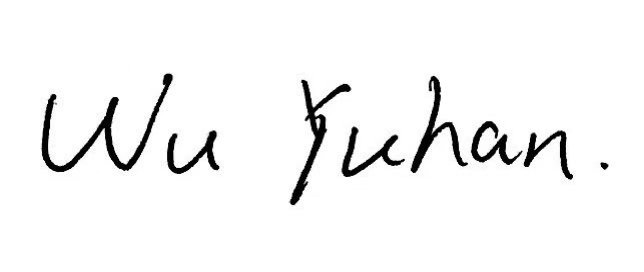 Wu Yuhan.